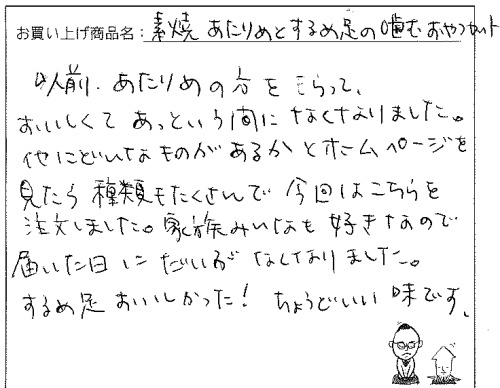 お買い上げ商品名: 素焼あたりめとするめ足の噛むおやつセット
以前、あたりめの方をもらって、
おいしくてあっという間になくなりました。
他にどんなものがあるかとホームページを
見たら種類もたくさんで今回はこちらを
注文しました。家族みんなも好きなので
届いた日にだいぶなくなりました。
するめ足おいしかった!ちょうどいい味です。